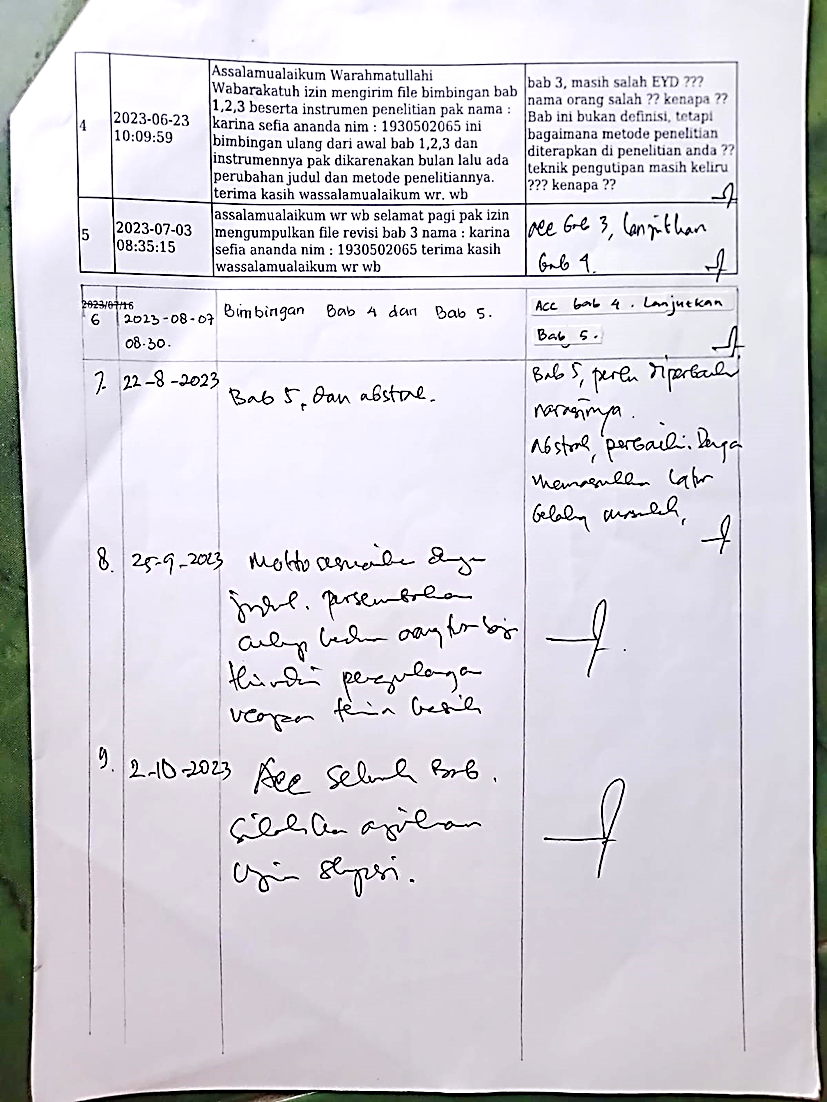 4
2023-06-23
10:09:59
Assalamualaikum Warahmatullahi
Wabarakatuh izin mengirim file bimbingan bab
1,2,3 beserta instrumen penelitian pak nama :
karina sefia ananda nim : 1930502065 ini
bimbingan ulang dari awal bab 1,2,3 dan
instrumennya pak dikarenakan bulan lalu ada
perubahan judul dan metode penelitiannya.
terima kasih wassalamualaikum wr. wb
bab 3, masih salah EYD ???
nama orang salah ?? kenapa ??
Bab ini bukan definisi, tetapi
bagaimana metode penelitian
diterapkan di penelitian anda ??
teknik pengutipan masih keliru
??? kenapa ??
5
2023-07-03
08:35:15
assalamualaikum wr wb selamat pagi pak izin
mengumpulkan file revisi bab 3 nama : karina
sefia ananda nim : 1930502065 terima kasih
wassalamualaikum wr wb
acc bab 3, lanjutkan
bab 4.
2023/07/16
6
2023-08-07
08.30.
Bimbingan Bab 4 dan Bab 5.
Acc bab 4. Lanjutkan
Bab 5.
7.
22-8-2023
Bab 5, dan abstrak.
Bab 5, perlu diperbaiki
narasinya.
Abstrak, perbaiki. Dengan
memasukkan latar
belakang masalah,
8.
25-9-2023
Motto sesuaikan dengan
judul. persembahan
cukup kedua orang tua
Hindari pengulangan
ucapan terima kasih
9.
2-10-2023
Acc seluruh Bab.
Silahkan ajukan
Ujian skripsi.